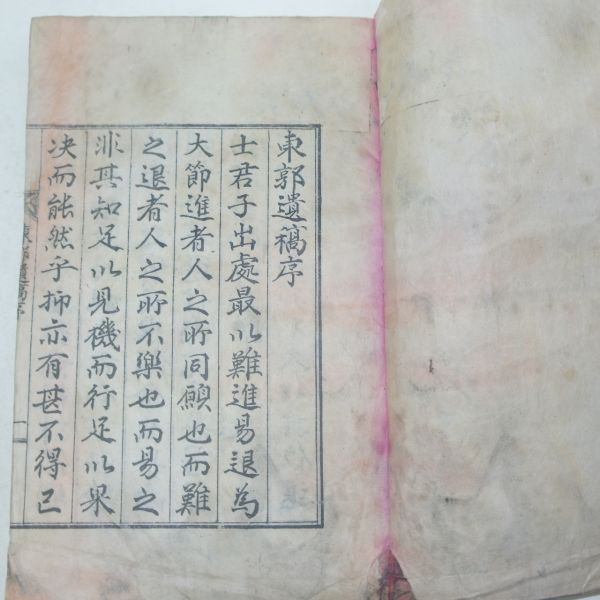 東郭遺稿序
士君子出處最以難進易退為
大節進者人之所同願也而難
之退者人之所不樂也而易之
非其知足以見機而行足以果
决而能然乎抑亦有甚不得已
東郭遺稿序
一